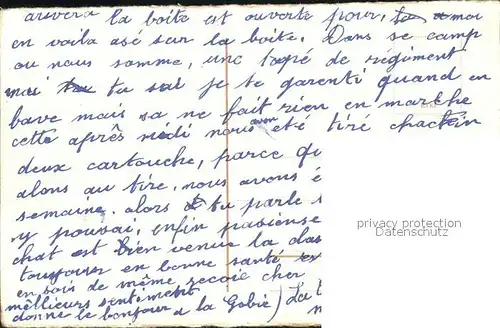 arivera la boite est ouverte pour, moi
en voila asé sur la boite. Dans se camp
ou nous somme, une tapé de régiment
mai tu sai je te garenti quand en
bave mais sa, ne fait rien en marche
cette après midi nous avon eté tiré chacun
deux cartouche, parce qu
alons au tire, nous avons é
semaine. alors tu parle s
y pouvai, enfin pasiense
chat est bien venue la das
toujour en bonne santé
en sois de même recoie cher
mêllieurs sentiment
donne le bonjour a la Gobie) La t
privacy protection
Datenschutz